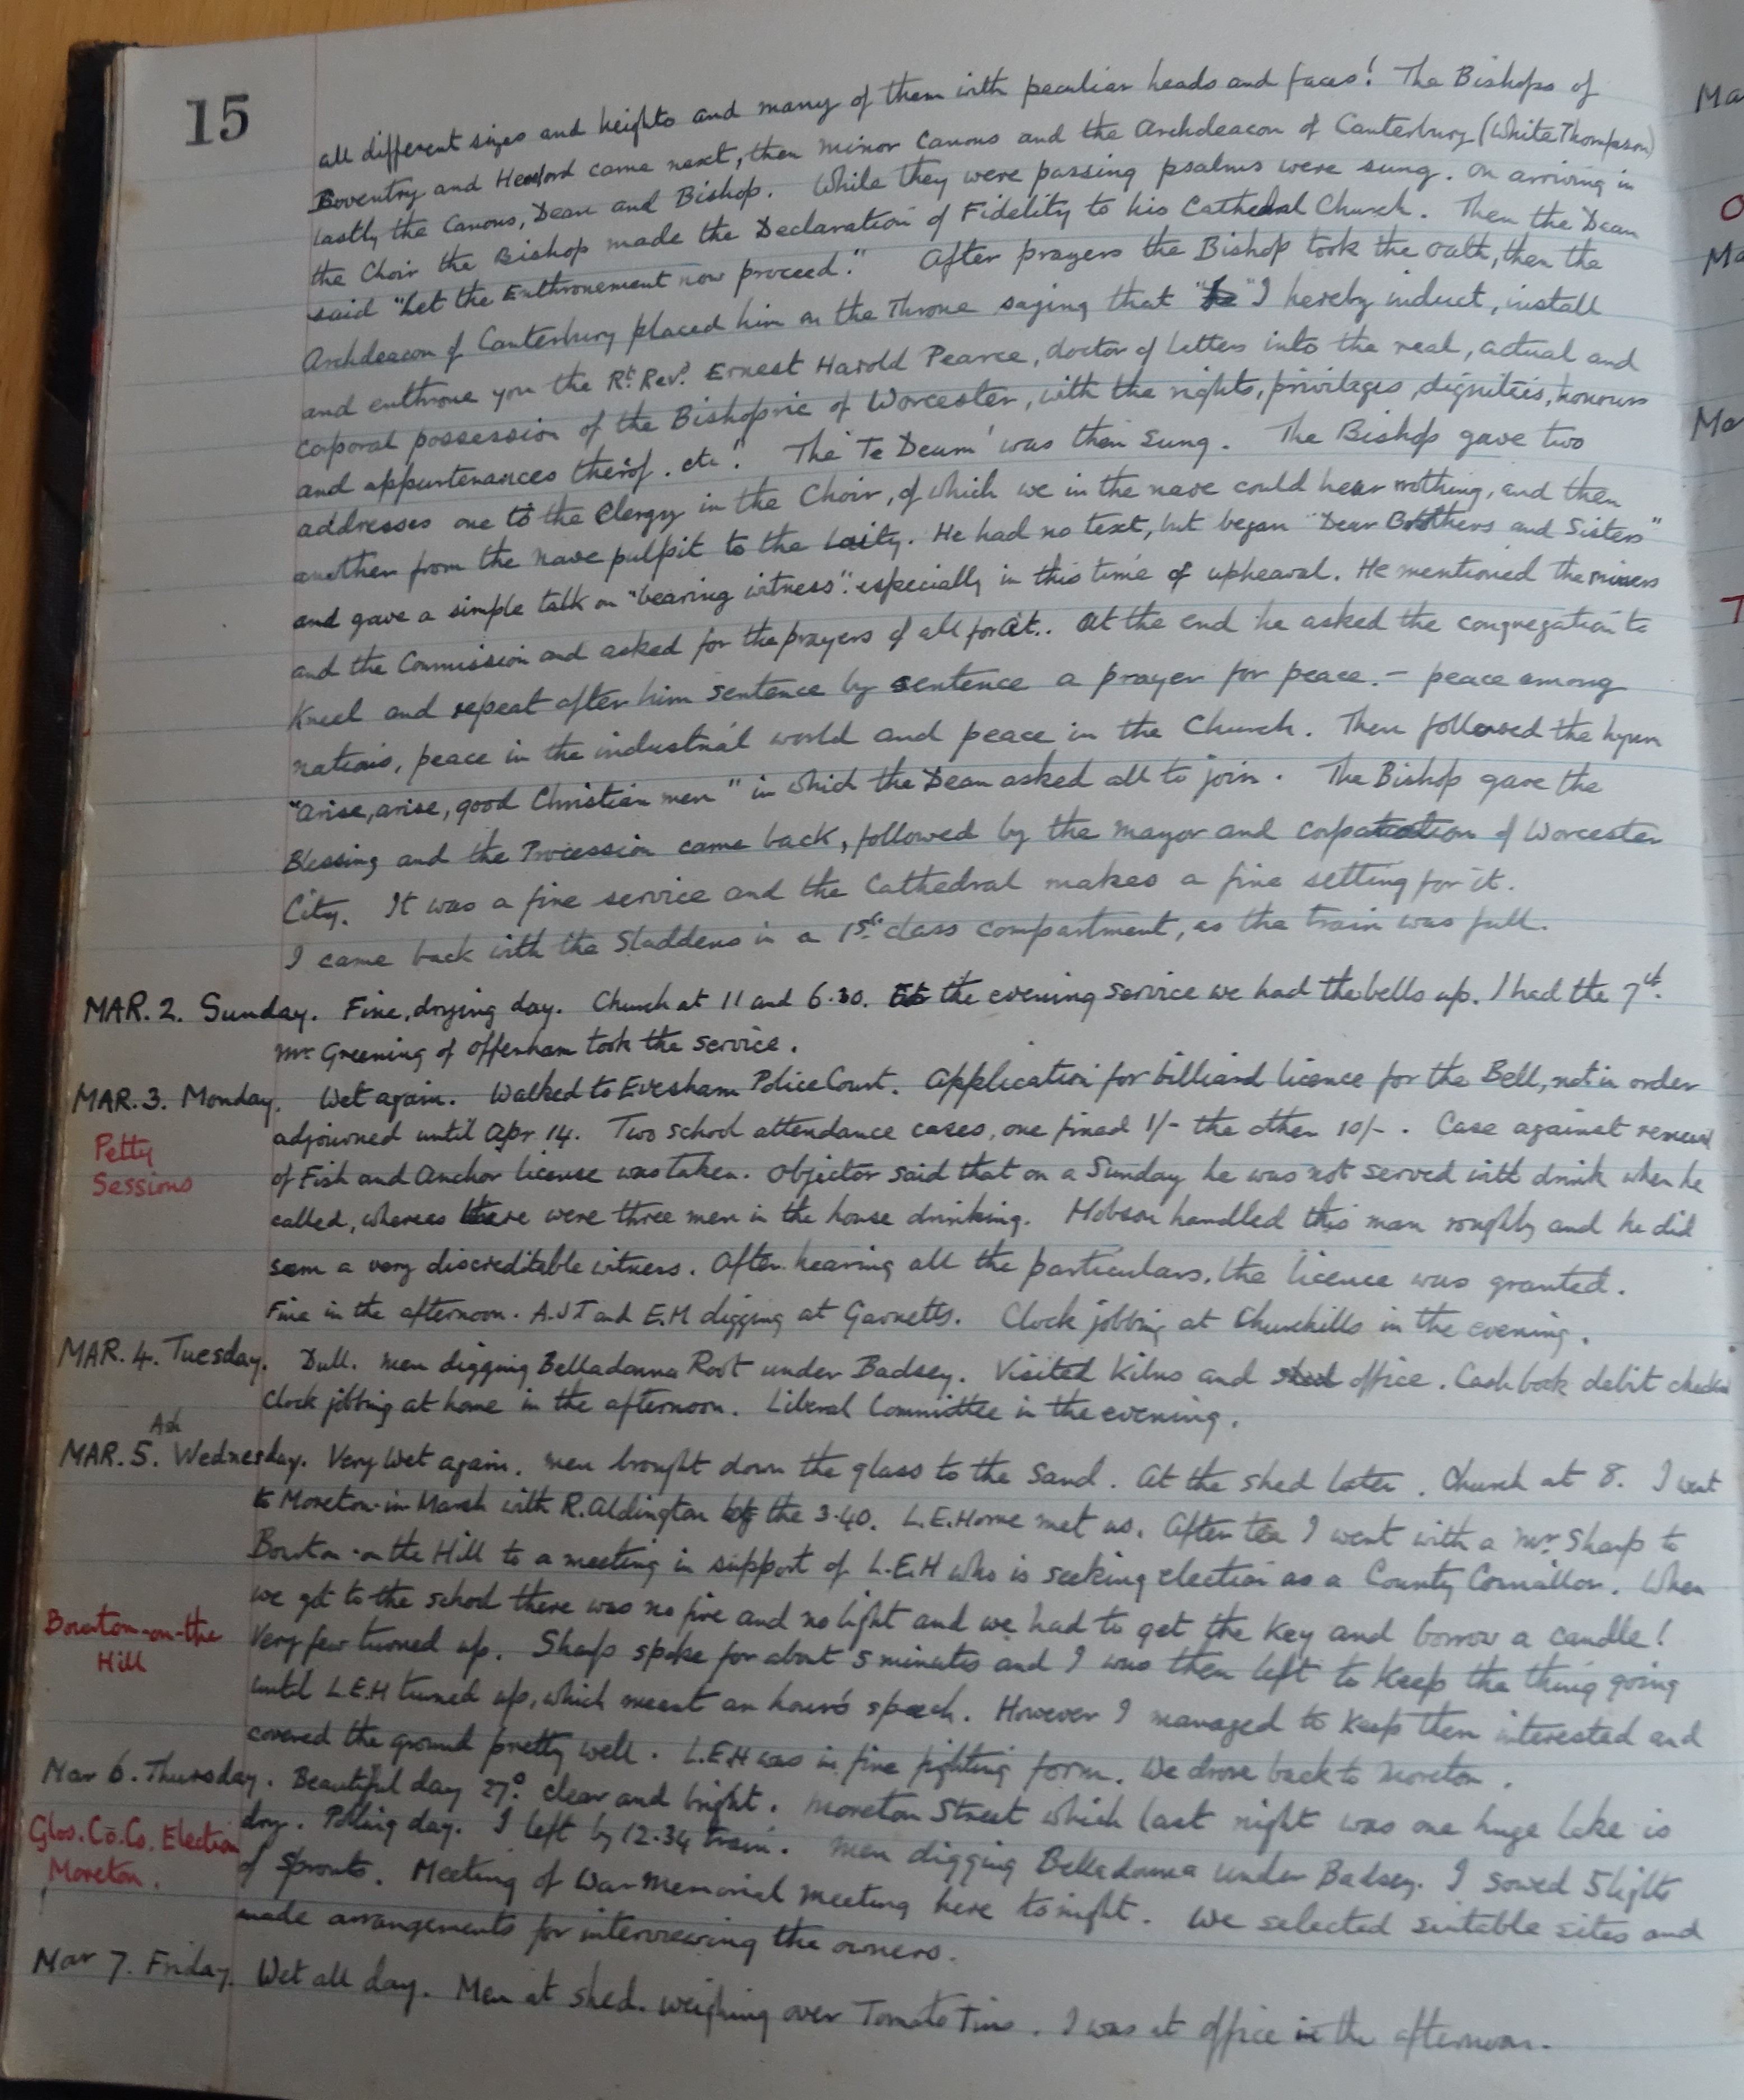 15
all different sizes and heights and many of them with peculiar heads and faces! The Bishops of
Coventry and Hereford came next, then minor Canons and the Archdeacon of Canterbury (White Thompson)
lastly the Canons, Dean and Bishop. While they were passing psalms were sung. On arriving in
the Choir the Bishop made the Declaration of Fidelity to his Cathedral Church. Then the Dean
said "Let the Enthronement now proceed." After prayers the Bishop took the oath, then the
Archdeacon of Canterbury placed him on the Throne saying that "I hereby induct, install
and enthrone you the Rt. Revd. Ernest Harold Pearce, doctor of Letters into the real, actual and
corporal possession of the Bishopric of Worcester, with the rights, privilages, dignities, honours
and appurtenances therof. etc". The 'Te Deum' was then sung. The Bishop gave two
addresses one to the Clergy in the Choir, of which we in the nave could hear nothing, and then
another from the nave pulpit to the laity. He had no text, but began "Dear Brothers and Sisters"
and gave a simple talk on "bearing witness". especially in this time of upheaval. He mentioned the miners
and the Commission and asked for the prayers of all for it.. At the end he asked the congregation to
kneel and repeat after him sentence by sentence a prayer for peace. - peace among
nations, peace in the industrial world and peace in the Church. Then followed the hymn
"Arise, arise, good Christian men" in which the Dean asked all to join. The Bishop gave the
Blessing and the Procession came back, followed by the Mayor and corporation of Worcester
City. It was a fine service and the Cathedral makes a fine setting for it.
I came back with the Sladdens in a 1st class compartment, as the train was full.
MAR. 2. Sunday. Fine, drying day. Church at 11 and 6.30. At the evening service we had the bells up. I had the 7th.
Mr Greening of Offenham took the service.
MAR. 3. Monday. Wet again. Walked to Evesham Police Court. Application for billiard licence for the Bell, not in order
adjourned until Apr 14. Two school attendance cases, one fined 1/- the other 10/-. Case against renewal
Petty
Sessions
of Fish and Anchor license was taken. Objector said that on a Sunday he was not served with drink when he
called, whereas there were three men in the house drinking. Hobson handled this man roughly and he did
seem a very discreditable witness. After hearing all the particulars, the licence was granted.
Fine in the afternoon. A.J.T and E.M digging at Garnetts. Clock jobbing at Churchills in the evening.
MAR. 4. Tuesday. Dull. Men digging Belladonna Root under Badsey. Visited Kilns and office. Cash book debit checked
Clock jobbing at home in the afternoon. Liberal Committee in the evening.
Ash
MAR. 5. Wednesday. Very Wet again. Men brought down the glass to the Sand. At the shed later. Church at 8. I went
to Moreton-in-Marsh with R. Aldington by the 3.40. L.E. Horne met us. After tea I went with a Mr. Sharp to
Bourton-on-the Hill to a meeting in support of L.E.H who is seeking election as a County Councillor. When
we got to the school there was no fire and no light and we had to get the key and borrow a candle!
Bourton-on-the
Hill
Very few turned up. Sharp spoke for about 5 minutes and I was then left to keep the thing going
until L.E.H turned up, which meant an hour's speech. However I managed to keep them interested and
covered the ground pretty well. L.E.H was in fine fighting form. We drove back to Moreton.
Mar 6. Thursday. Beautiful day 27°. clear and bright. Moreton Street which last night was one huge lake is
Glos. Co. Co. Election
Moreton.
dry. Polling day. I left by 12.34 train. Men digging Belladonna under Badsey. I sowed 5 lights
of sprouts. Meeting of War Memorial meeting here tonight. We selected suitable sites and
made arrangements for interviewing the owners.
Mar 7. Friday. Wet all day. Men at shed. weighing over Tomato Tins. I was at office in the afternoon.